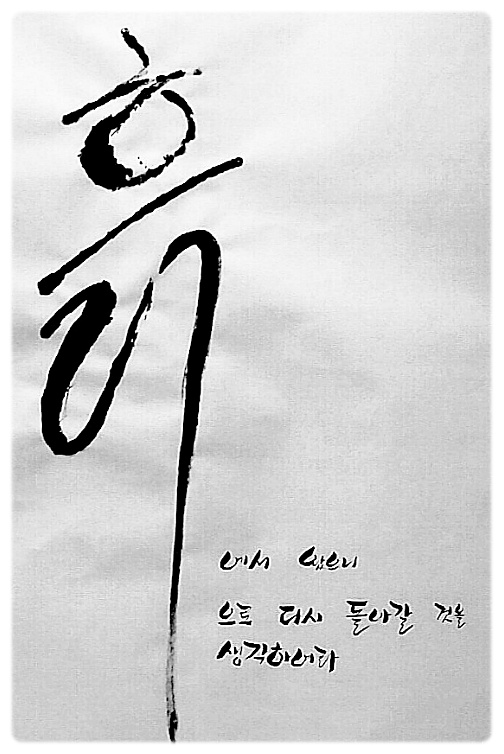 흙
에서 왔으니
으로 다시 돌아갈 것을
생각하여라